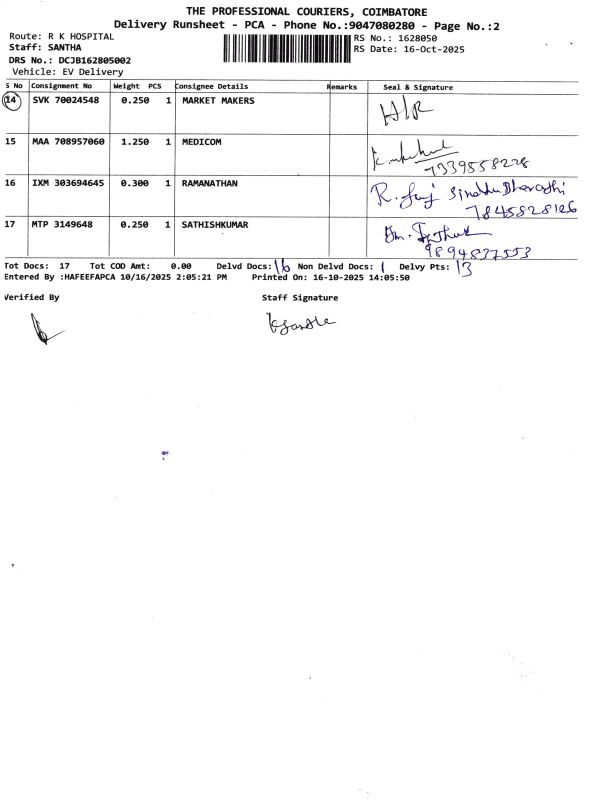 THE PROFESSIONAL COURIERS, COIMBATORE
Delivery Runsheet - PCA - Phone No.:9047080280 - Page No.:2
Route: R K HOSPITAL
RS No.: 1628050
Staff: SANTHA
RS Date: 16-Oct-2025
DRS No.: DCJB162805002
Vehicle: EV Delivery
S No Consignment No Weight PCS Consignee Details Remarks Seal & Signature
14 SVK 70024548 0.250 1 MARKET MAKERS H/R
15 MAA 708957060 1.250 1 MEDICOM
7339558228
16 IXM 303694645 0.300 1 RAMANATHAN R.
7845828126
17 MTP 3149648 0.250 1 SATHISHKUMAR
9894837553
Tot Docs: 17 Tot COD Amt: 0.00 Delvd Docs: 16 Non Delvd Docs: 1 Delvy Pts: 13
Entered By :HAFEEFAPCA 10/16/2025 2:05:21 PM Printed On: 16-10-2025 14:05:50
Verified By Staff Signature